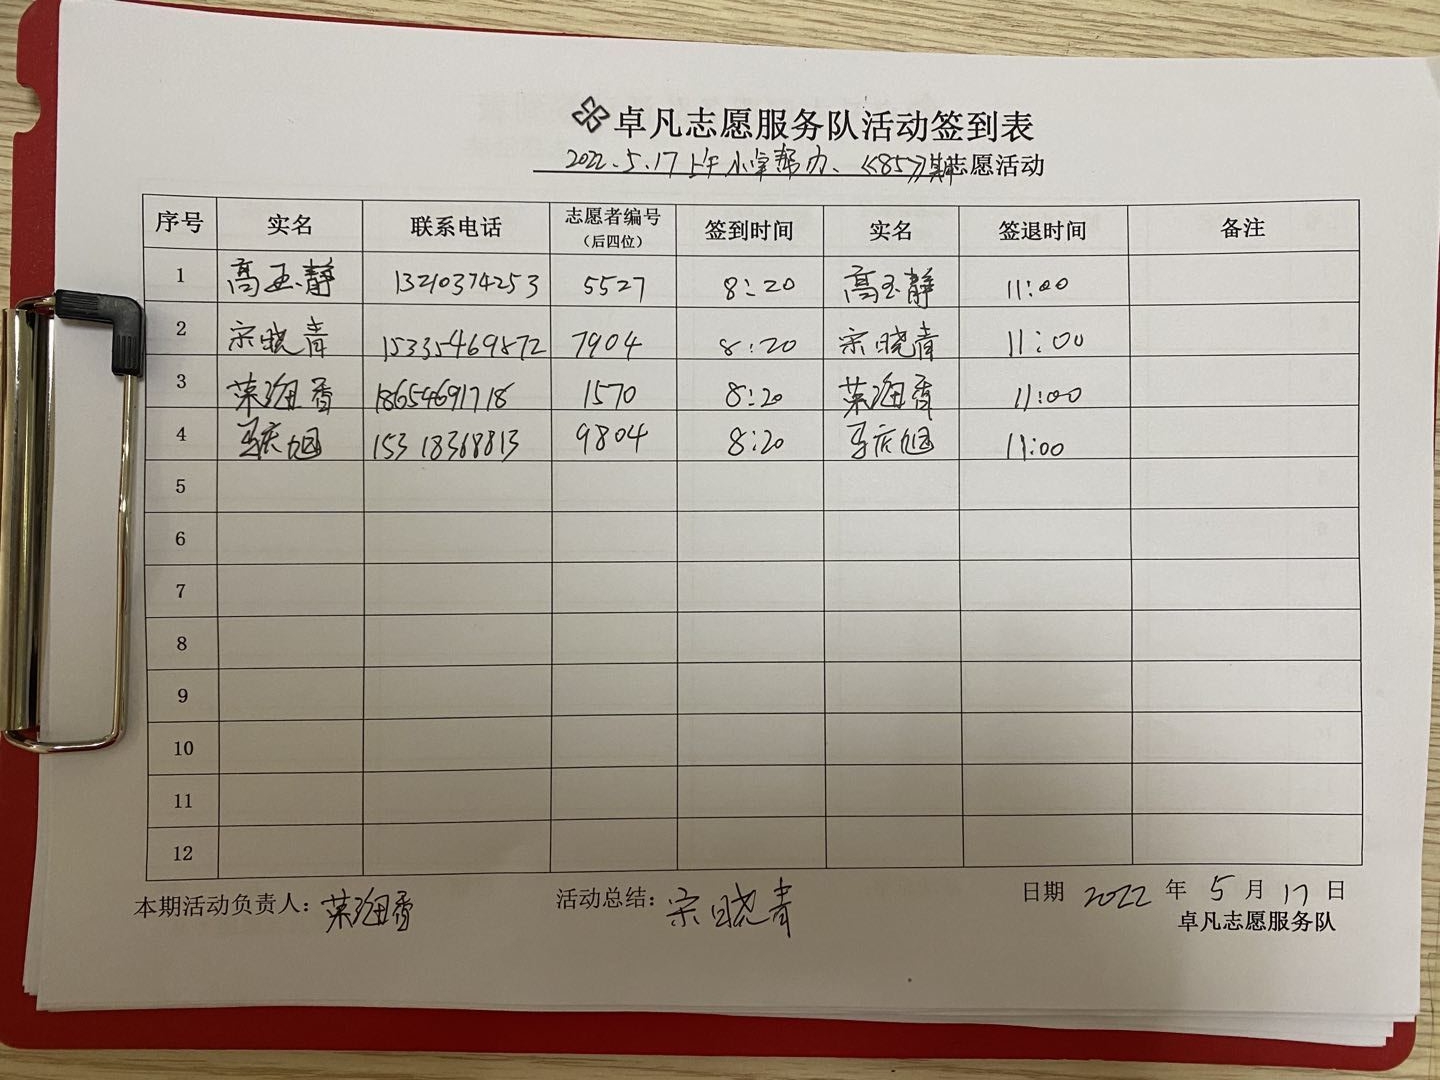 卓凡志愿服务队活动签到表
2022.5.17上午 小军帮办、《85》期志愿活动
序号 实名 联系电话 志愿者编号（后四位） 签到时间 实名 签退时间 备注
1 高玉静 13210374253 5527 8:20 高玉静 11:00
2 宋晓青 15335469572 7904 8:20 宋晓青 11:00
3 荣海香 18654691718 1570 8:20 荣海香 11:00
4 马庆旭 15318368813 9804 8:20 马庆旭 11:00
5
6
7
8
9
10
11
12
本期活动负责人：荣海香 活动总结：宋晓青 日期 2022 年 5 月 17 日
卓凡志愿服务队